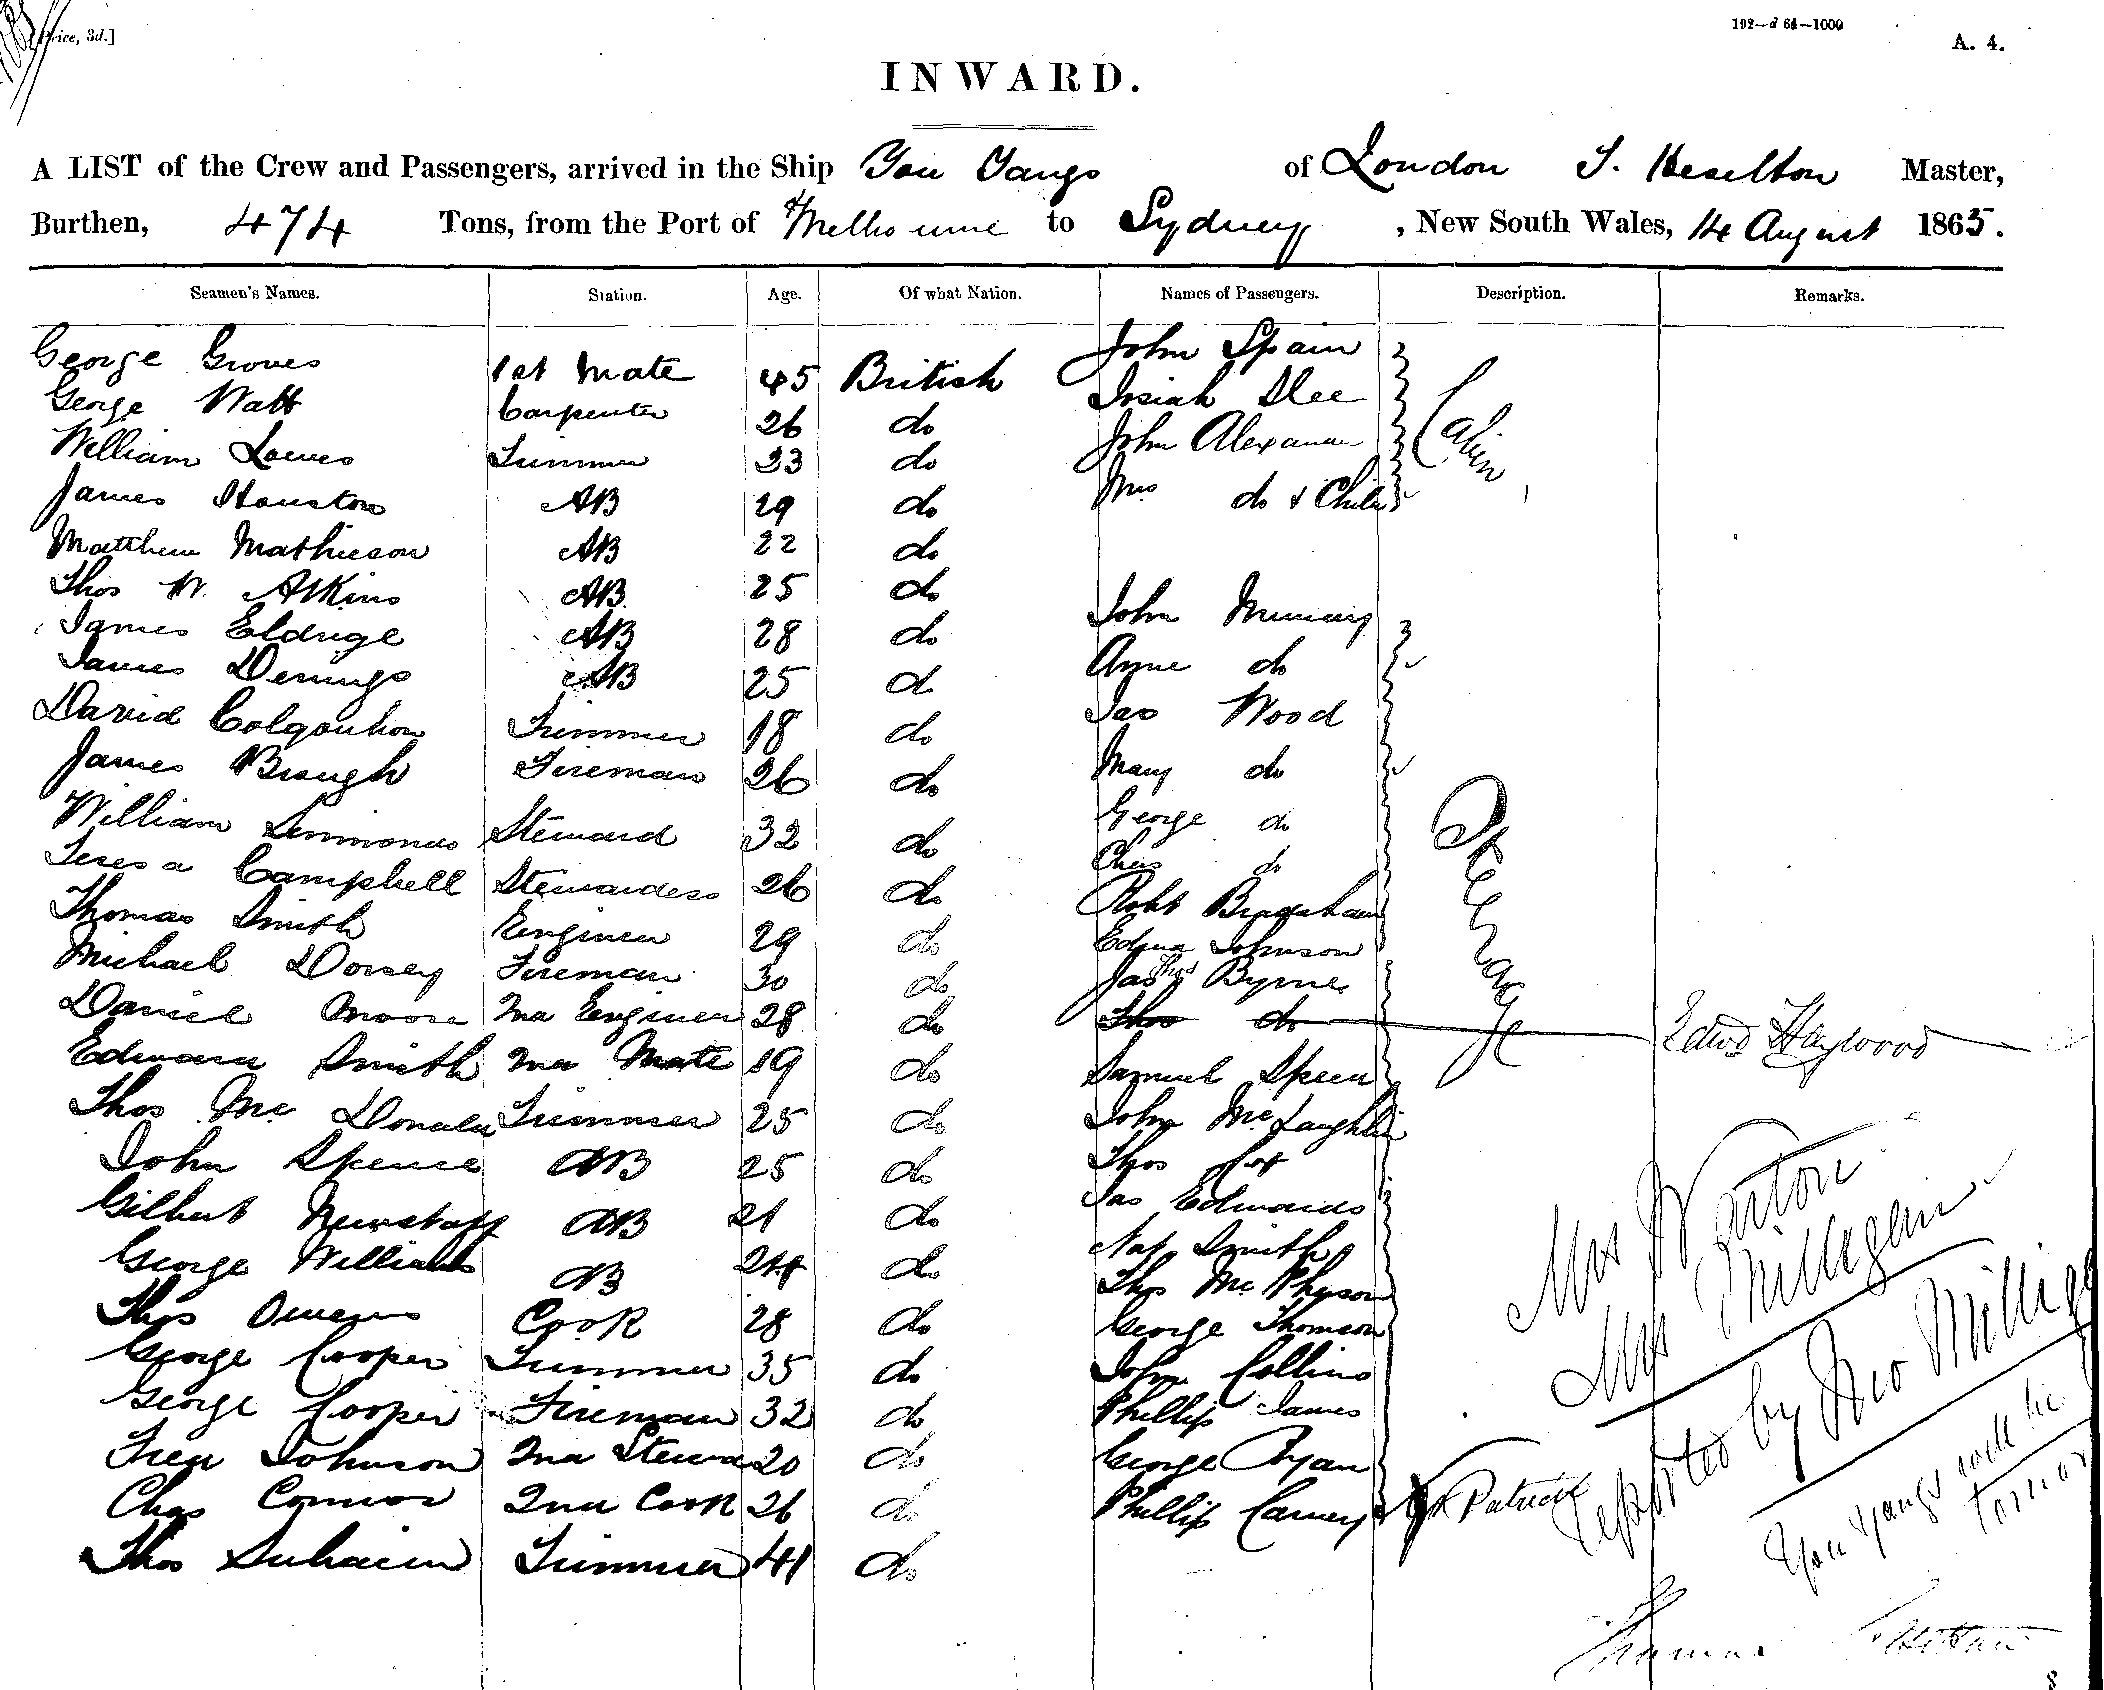 [Price, 3d.]
192—d 64—1000
A. 4.
INWARD.
A LIST of the Crew and Passengers, arrived in the Ship You Yangs of London T. Heselton Master,
Burthen, 474 Tons, from the Port of Melbourne to Sydney, New South Wales, 14 August 1865.
Seamen's Names. Station. Age. Of what Nation. Names of Passengers. Description. Remarks.
George Groves 1st Mate 45 British John Spain
George Watt Carpenter 26 do Josiah Slee
William Lowes Trimmer 33 do John Alexander Cabin
James Houston AB 29 do Mrs do & Child
Matthew Mathieson AB 22 do
Thos W. Atkins AB 25 do John Murray
James Eldrige AB 28 do Anne do
James Demings AB 25 do Jas Wood
David Colqouhon Trimmer 18 do Mary do
James Brough Fireman 26 do George do
William Simmonds Steward 32 do Chas do Steerage
Teresa Campbell Stewardess 26 do Robt Bradshaw
Thomas Smith Engineer 29 do Edwd Johnson
Michael Dorsey Fireman 30 do Jas Thos Byrnes
Daniel Moore 2nd Engineer 28 do Thos do Edwd Haywood
Edward Smith 2nd Mate 19 do Samuel Speer
Thos Mc Donald Trimmer 25 do John McLaughlin
John Spence AB 25 do Thos Cox
Gilbert Newstaff AB 21 do Jas Edwards
George Williams AB 24 do Nat Smith
Thos Owens Cook 28 do Thos McPherson
George Cooper Trimmer 35 do George Thomson
George Cooper Fireman 32 do John Collins
Fred Johnson 2nd Steward 20 do Phillip James
Chas Connor 2nd Cook 26 do George Ryan
Thos Trimmer 41 do Phillip Carney Patrick
Mrs Warton
Mrs Milligan
reported by Geo Milligan
You Yangs will be
Thomas
8